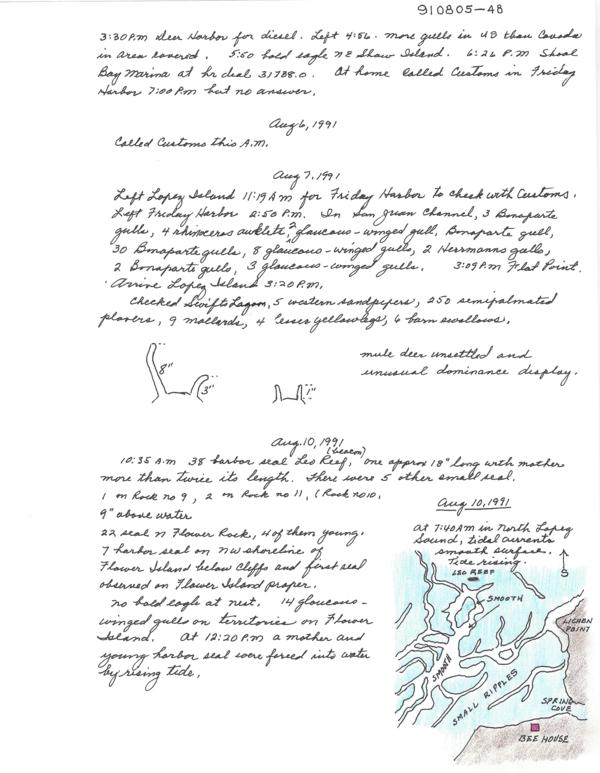 910805-48
3:30 P.M Deer Harbor for diesel. Left 4:56. more gulls in US than Canada
in area covered. 5:50 bald eagle NE Shaw Island. 6:26 P.M Shoal
Bay Marina at hr dial 31788.0. At home called Customs in Friday
Harbor 7:00 Pm but no answer.
Aug 6, 1991
Called Customs this A.M.
Aug 7, 1991
Left Lopez Island 11:19 AM for Friday Harbor to check with Customs.
Left Friday Harbor 2:50 P.M. In San Juan Channel, 3 Bonaparte
gulls, 4 rhinoceros auklets, 2 glaucous-winged gull, Bonaparte gull,
30 Bonaparte gulls, 8 glaucous-winged gulls, 2 Herrmanns gulls,
2 Bonaparte gulls, 3 glaucous-winged gulls. 3:09 P.M Flat Point.
Arrive Lopez Island 3:20 P.M.
Checked Swifts Lagoon, 5 western sandpipers, 250 semipalmated
plovers, 9 mallards, 4 lesser yellowlegs, 6 barn swallows.
8"
3"
1"
mule deer unsettled and
unusual dominance display.
Aug. 10, 1991
10:35 A.m 38 harbor seal Leo Reef, (beacon) one approx 18" long with mother
more than twice its length. There were 5 other small seal.
1 on Rock no 9, 2 on Rock no 11, (Rock no 10,
9" above water
22 seal N Flower Rock, 4 of them young.
7 harbor seal on NW shoreline of
Flower Island below cliffs and first seal
observed on Flower Island proper.
no bald eagle at nest. 14 glaucous-
winged gulls on territories on Flower
Island. At 12:20 P.M a mother and
young harbor seal were forced into water
by rising tide.
Aug 10, 1991
At 7:40 AM in North Lopez
Sound, tidal currents
smooth surface.
Tide rising.
LEO REEF
S
SMOOTH
LICHEN
POINT
SMOOTH
SMALL RIPPLES
SPRING
COVE
BEE HOUSE